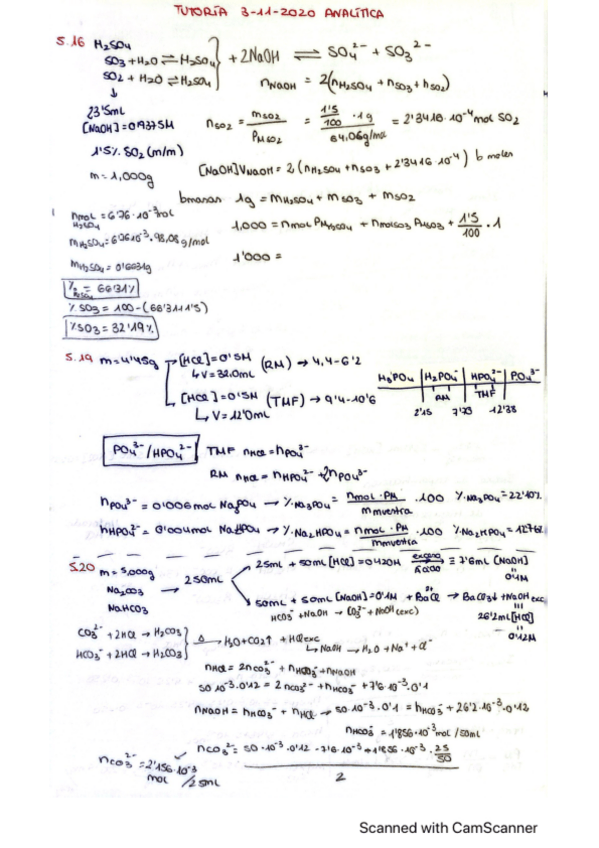 TUTORÍA 3-11-2020 ANALÍTICA
5.16 H₂SO₄
SO₃ + H₂O ⇌ H₂SO₄ } + 2NaOH ⇌ SO₄²⁻ + SO₃²⁻
SO₂ + H₂O ⇌ H₂SO₃
n NaOH = 2(n H₂SO₄ + n SO₃ + n SO₂)
23'5mL
[NaOH] = 0'9375M
n SO₂ = m SO₂ / PM SO₂ = 1'5/100 · 1g / 64,06g/mol = 2'3416·10⁻⁴ mol SO₂
1'5% SO₂ (m/m)
m = 1,000g
[NaOH] V NaOH = 2 (n H₂SO₄ + n SO₃ + 2'3416·10⁻⁴) b moles
b masas 1g = m H₂SO₄ + m SO₃ + m SO₂
n mol H₂SO₄ = 6'76·10⁻³ mol
1,000 = n mol PM H₂SO₄ + n mol SO₃ PM SO₃ + 1'5/100 · 1
m H₂SO₄ = 6'76·10⁻³ · 98,08 g/mol
1'000 =
m H₂SO₄ = 0'6631g
% H₂SO₄ = 66'31%
% SO₃ = 100 - (66'31+1'5)
% SO₃ = 32'19%
5.19 m = 4'45g → [HCl] = 0'5M (RM) → 4,4-6'2
↳ V = 32.0mL
H₃PO₄ | H₂PO₄⁻ | HPO₄²⁻ | PO₄³⁻
RM TMF
2'15 7'20 12'38
↳ [HCl] = 0'5M (TMF) → 9'4-10'6
↳ V = 12'0mL
PO₄³⁻/HPO₄²⁻ TMF n HCl = n PO₄³⁻
RM n HCl = n HPO₄²⁻ + 2n PO₄³⁻
n PO₄³⁻ = 0'006 mol Na₃PO₄ → % Na₃PO₄ = n mol · PM / m muestra · 100 % Na₃PO₄ = 22'10%
n HPO₄²⁻ = 0'004 mol Na₂HPO₄ → % Na₂HPO₄ = n mol · PM / m muestra · 100 % Na₂HPO₄ = 12'76%
5.20 m = 5,000g
Na₂CO₃
NaHCO₃
→ 250mL
25mL + 50mL [HCl] = 0'120M exceso ácido ≡ 7'6mL [NaOH]
0'1M
50mL + 50mL [NaOH] = 0'1M + BaCl₂ → BaCO₃↓ + NaOH exc
HCO₃⁻ + NaOH → CO₃²⁻ + NaOH (exc)
26'2mL [HCl]
0'12M
CO₃²⁻ + 2HCl → H₂CO₃
HCO₃⁻ + 2HCl → H₂CO₃
} Δ → H₂O + CO₂↑ + HCl exc
↳ NaOH → H₂O + Na⁺ + Cl⁻
n HCl = 2n CO₃²⁻ + n HCO₃⁻ + n NaOH
50·10⁻³·0'12 = 2n CO₃²⁻ + n HCO₃⁻ + 7'6·10⁻³·0'1
n NaOH = n HCO₃⁻ + n HCl → 50·10⁻³·0'1 = n HCO₃⁻ + 26'2·10⁻³·0'12
n HCO₃⁻ = 1'856·10⁻³ mol/50mL
n CO₃²⁻ = 50·10⁻³·0'12 - 7'6·10⁻⁵ + 1'856·10⁻³ · 25/50
2
n CO₃²⁻ = 2'156·10⁻³ mol/25mL
Scanned with CamScanner